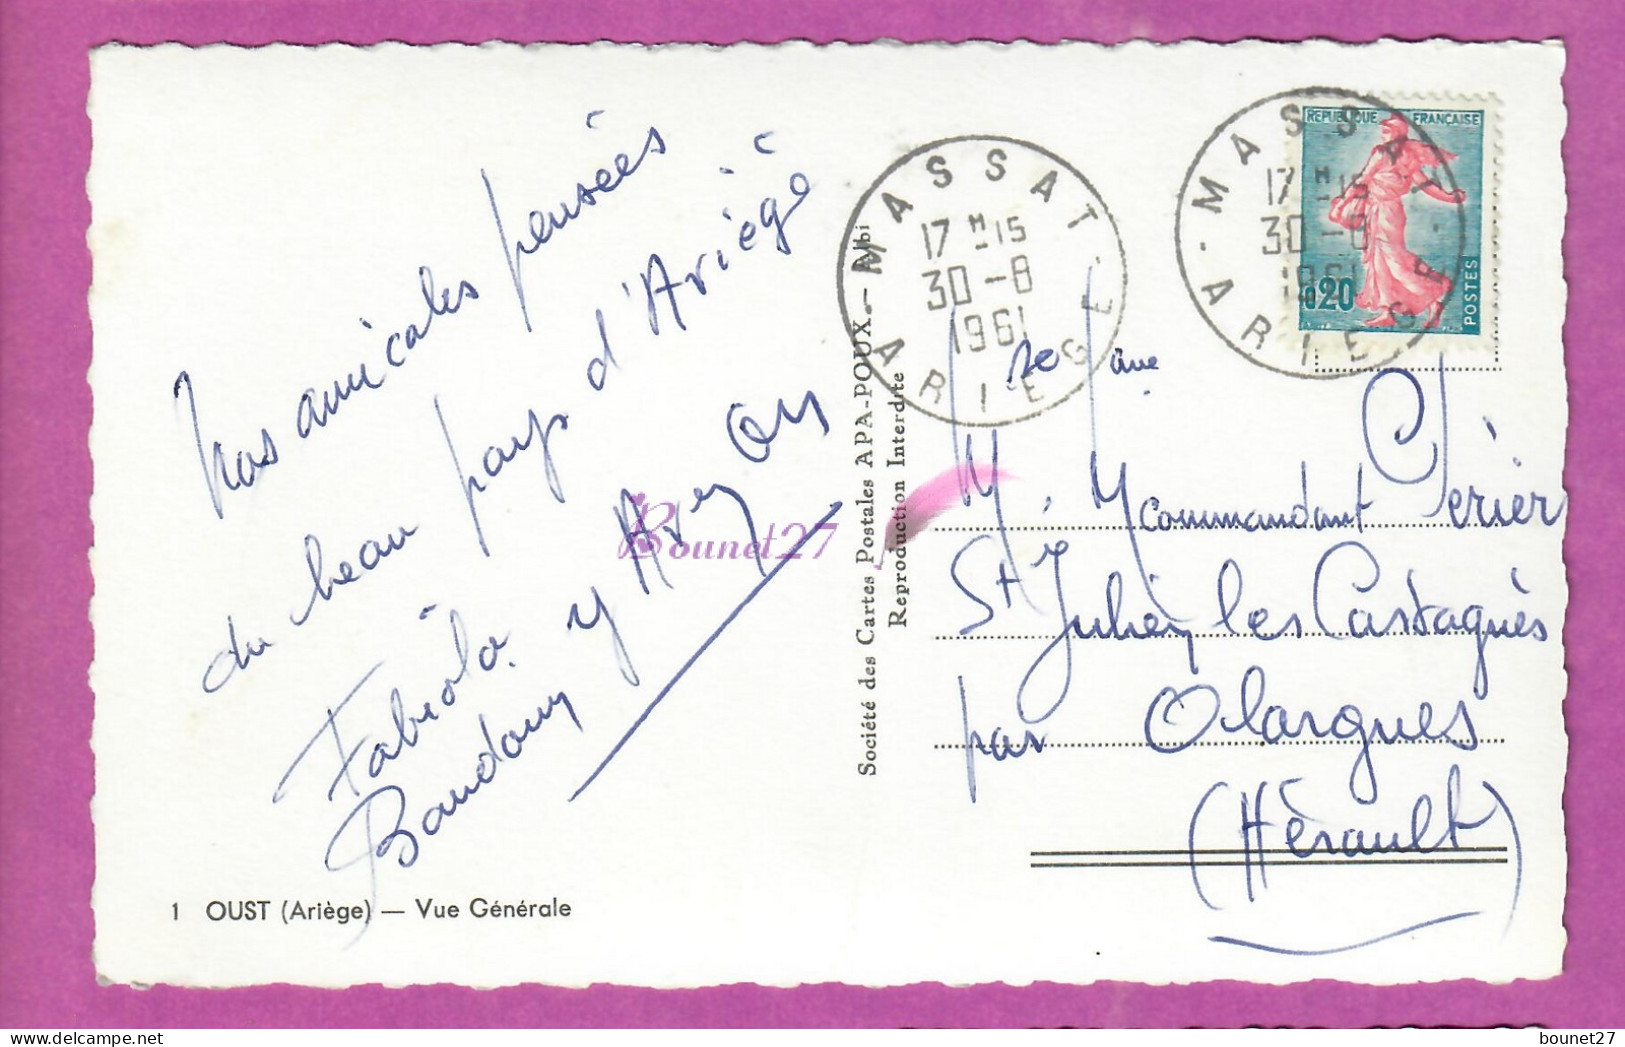 Nos amicales pensées
du beau pays d'Ariège
Fabiola
Baudouin y
1 OUST (Ariège) — Vue Générale
Société des Cartes Postales APA-POUX - Albi
Reproduction Interdite
MASSAT
17 H -15
30 -8
1961
ARIEGE
MASSAT
17 H -15
30 -8
1961
ARIEGE
REPUBLIQUE FRANÇAISE
0,20
POSTES
M. Commandant Clerier
St Julien les Castagnès
par Olargues
(Hérault)
Bounet27
bounet27